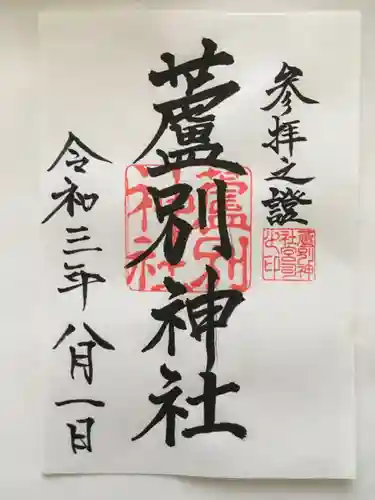 參拜之證
蘆別神社
蘆別
神社
蘆別神
社宮司
之印
令和三年八月一日